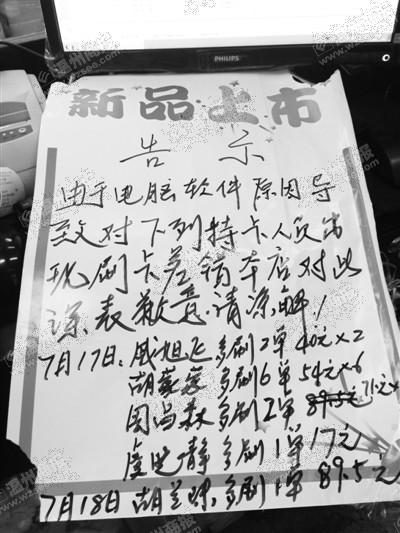 PHILIPS
新品上市
告示
由于电脑软件原因导
致对下列持卡人员出
现刷卡差错本店对此
深表歉意.请凉解!
7月17日: 戚旭飞 多刷2单 40元×2
胡 多刷6单 54元×6
周尚敏 多刷2单 89.5元 71元×
虞 静 多刷1单 17元
7月18日 胡兰珠 多刷1单 89.5元